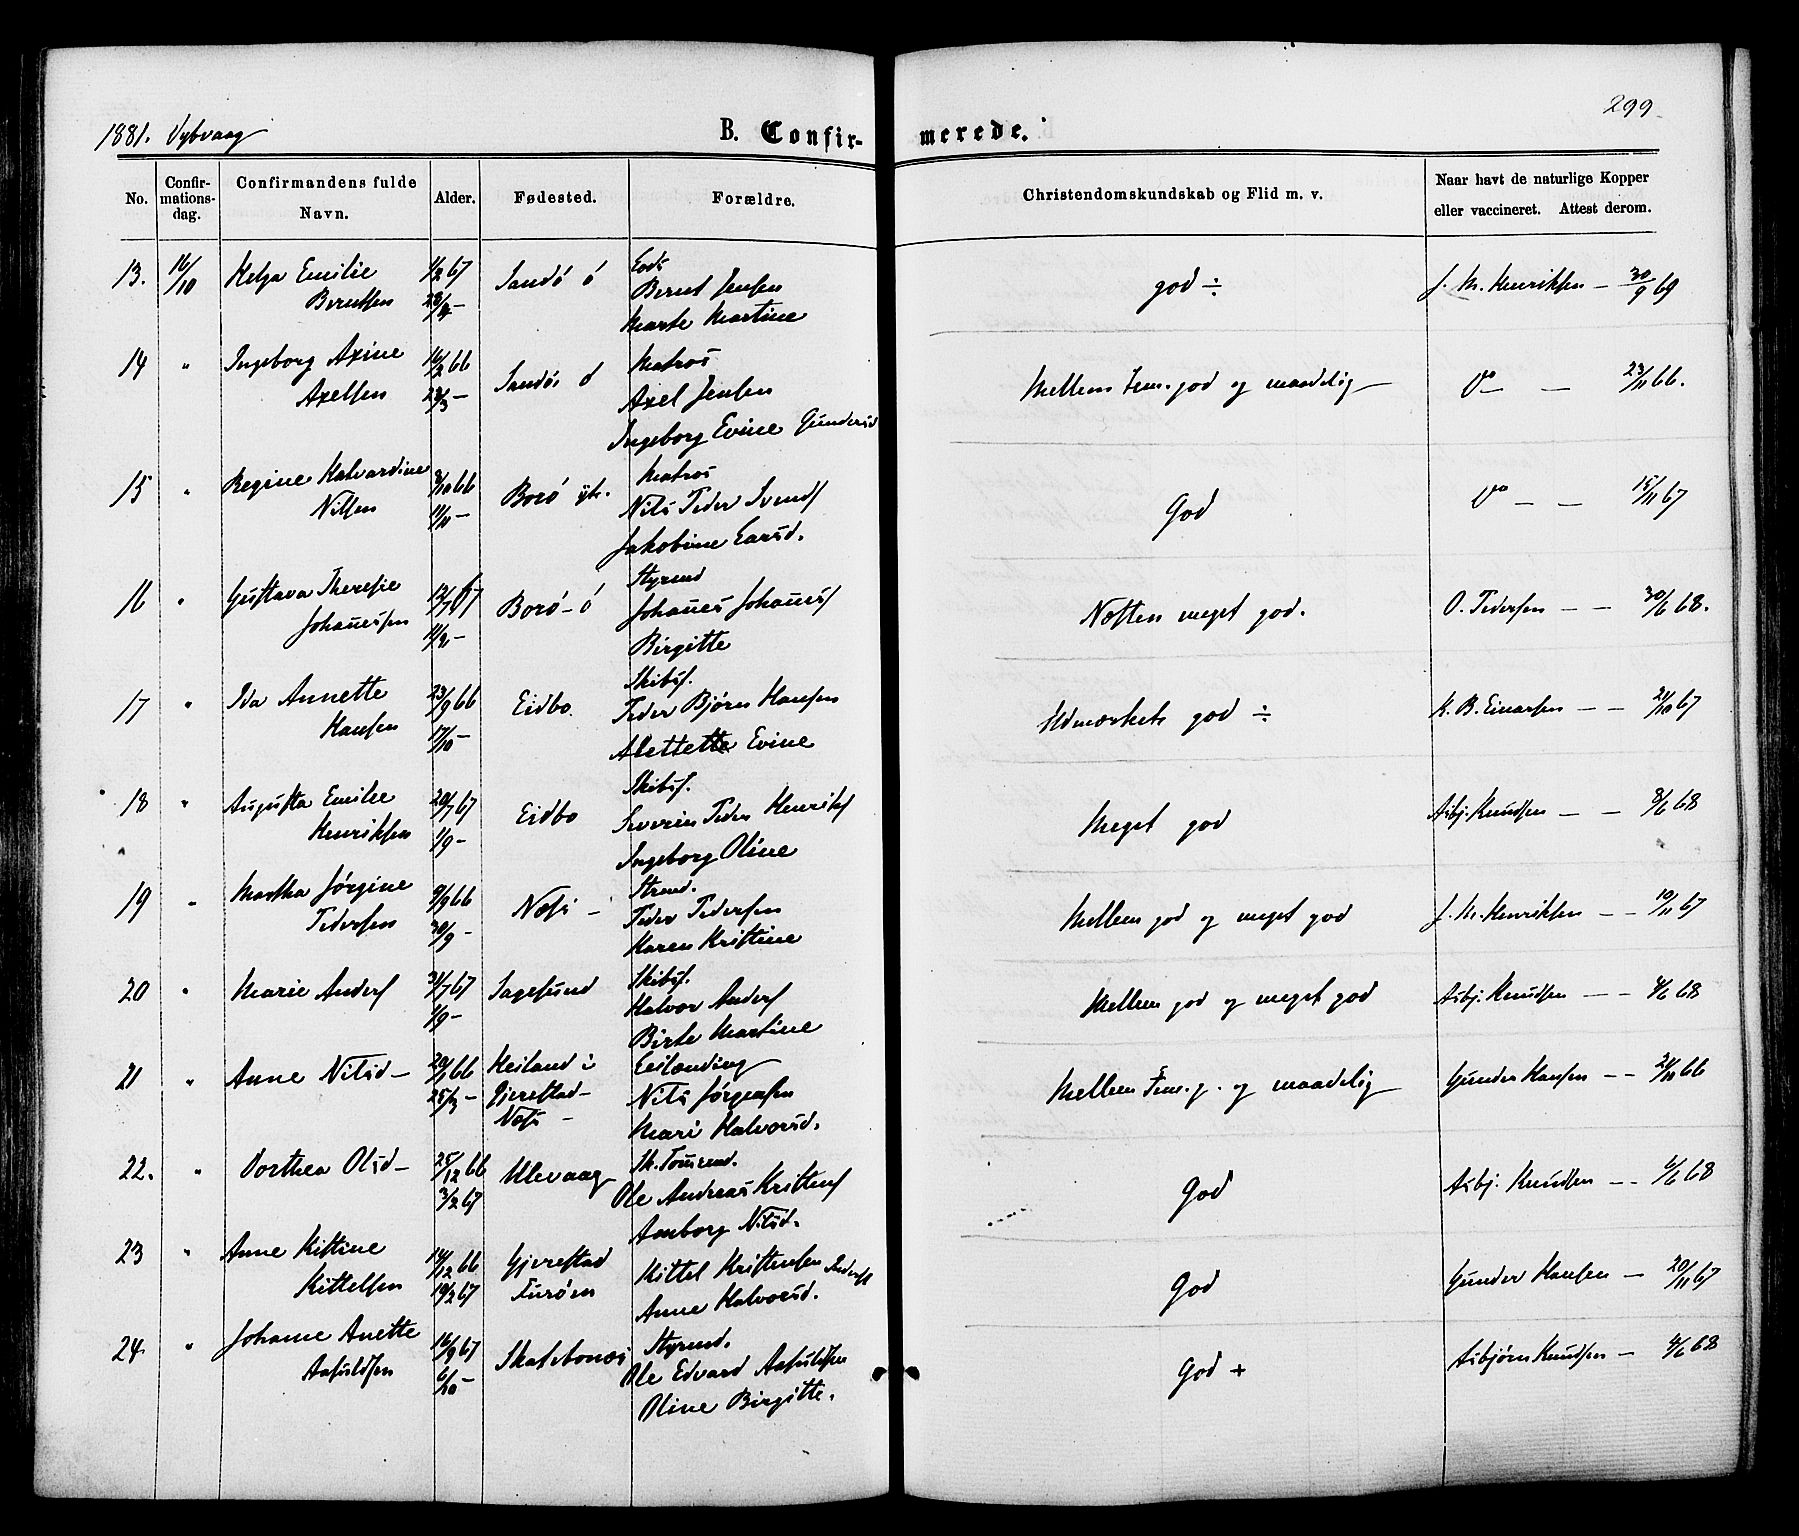 299
1881. Vybvaag
B. Confir-
merede.
No.
Confir-
mations-
dag.
Confirmandens fulde
Navn.
Alder.
Fødested.
Forældre.
Christendomskundskab og Flid m. v.
Naar havt de naturlige Kopper
eller vaccineret. Attest derom.
13. 16/10 Helga Emilie 1/2 67 Sandö ö
Berntsen
Bernt Jensen
Marte Martine
god ÷ J. M. Henriksen – 30/9 69
14 " Ingeborg Axine 16/2 66 Sandö ö Matros
Axelsen Axel Jensen
Ingeborg Evine Gundersd
Mellem Tem. god og maadelig Do – 23/11 66.
15 " Regine Halvardine 3/10 66 Borö ytr. Matros
Nilsen 11/11 – Nils Peder Svends
Jakobine Larsd.
God Do – – 15/11 67
16 " Gustava Theresie 12/7 67 Borö – ö Styrmd
Johanessen Johanes Johaness
Birgitte
Næsten meget god. O. Pedersen – – 30/6 68.
17 " Ida Annette 23/9 66 Eidbo Skibsf.
Hansen 17/10 – Peder Bjørn Hansen
Alettette Evine
Udmærkets god ÷ K. B. Einarsen – – 21/10 67
18 " Augusta Emilie 20/7 67 Eidbo Skibsf.
Henriksen 1/9 – Severin Peder Henriks
Ingeborg Oline
Meget god Asbj. Knudsen – – 8/6 68
19 " Martha Jörgine 9/9 66 Næss – Strmd.
Pedersen 30/9 – Peder Pedersen
Karen Kristine
Mellem god og meget god J. M. Henriksen – – 10/11 67
20 " Marie Anders 31/7 67 Sagesund Skibsf.
1/9 – Halvor Anders
Birte Martine
Mellem god og meget god Asbj. Knudsen – – 4/6 68
21 " Anne Nilsd – 20/1 66 Heiland i Leilænding
25/3 – Gjerestad – Nils Jörgensen
Næss – Mari Halvorsd.
Mellem Tem. g. og maadelig Gunder Hansen – – 21/11 66
22. " Dorthea Olsd – 25/12 66 Ulevaag
3/2 67 Ole Andreas Kristens
Aanborg Nilsd.
God Asbj. Knudsen – – 4/6 68
23 " Anne Kistine 14/12 66 Gjerestad Kittel Kristensen
Kittelsen 19/2 67 Furöen Anne Halvorsd.
God Gunder Hansen – 20/11 67
24. " Johanne Anette 16/9 67 Skatebonæs Styrmd.
Aasuldsen 6/10 – Ole Edvard Aasuldsen
Oline Birgitte.
God + Asbjørn Knudsen – 4/6 68